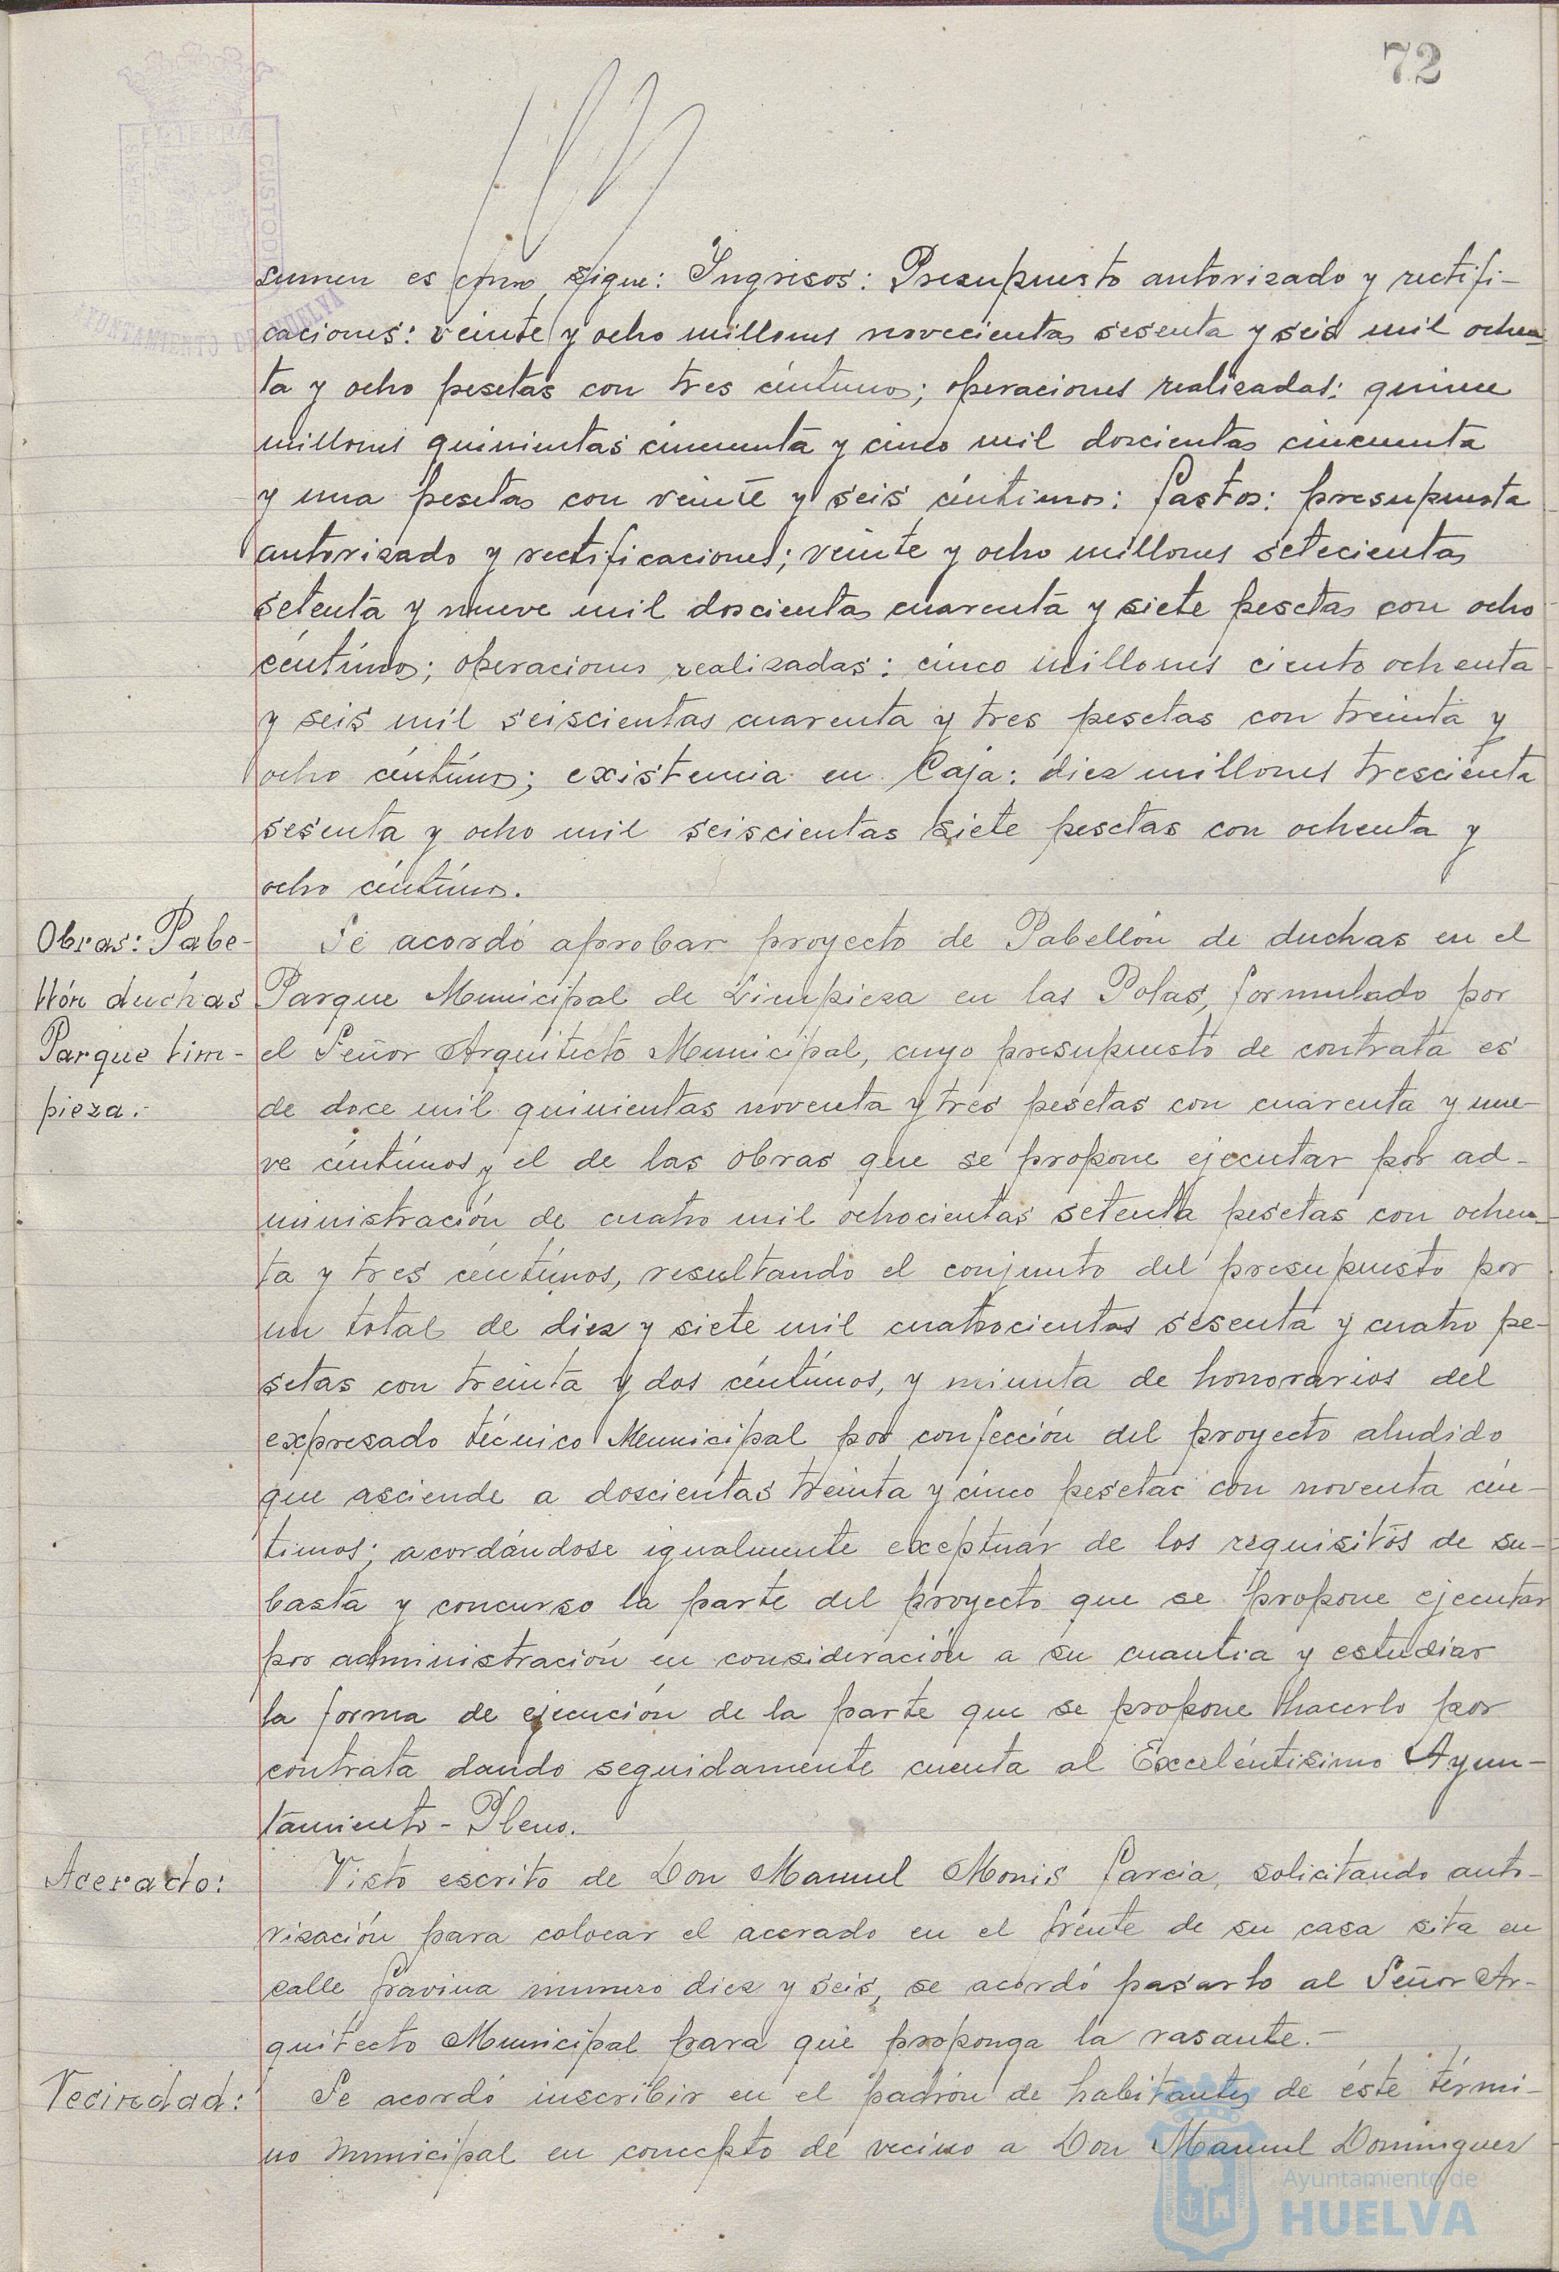 72
sumen es como sigue: Ingresos: Presupuesto autorizado y rectifi-
caciones: veinte y ocho millones novecientas sesenta y seis mil ochen-
ta y ocho pesetas con tres céntimos; operaciones realizadas: quince
millones quinientas cincuenta y cinco mil doscientas cincuenta
y una pesetas con veinte y seis céntimos: Gastos: presupuesto
autorizado y rectificaciones; veinte y ocho millones setecientas
setenta y nueve mil doscientas cuarenta y siete pesetas con ocho
céntimos; operaciones realizadas: cinco millones ciento ochenta
y seis mil seiscientas cuarenta y tres pesetas con treinta y
ocho céntimos; existencia en Caja: diez millones trescienta
sesenta y ocho mil seiscientas siete pesetas con ochenta y
ocho céntimos.
Obras: Pabe-
llón duchas
Parque lim-
pieza.-
Se acordó aprobar proyecto de Pabellón de duchas en el
Parque Municipal de Limpieza en las Polas, formulado por
el Señor Arquitecto Municipal, cuyo presupuesto de contrata es
de doce mil quinientas noventa y tres pesetas con cuarenta y nue-
ve céntimos y el de las obras que se propone ejecutar por ad-
ministración de cuatro mil ochocientas setenta pesetas con ochen-
ta y tres céntimos, resultando el conjunto del presupuesto por
un total de diez y siete mil cuatrocientas sesenta y cuatro pe-
setas con treinta y dos céntimos, y minuta de honorarios del
expresado técnico Municipal por confección del proyecto aludido
que asciende a doscientas treinta y cinco pesetas con noventa cén-
timos; acordándose igualmente exceptuar de los requisitos de su-
basta y concurso la parte del proyecto que se propone ejecutar
por administración en consideración a su cuantia y estudiar
la forma de ejecución de la parte que se propone hacerlo por
contrata dando seguidamente cuenta al Excelentisimo Ayun-
tamiento-Pleno.
Acerado:
Visto escrito de Don Manuel Monis Garcia, solicitando auto-
rización para colocar el acerado en el frente de su casa sita en
calle Gravina numero diez y seis, se acordó pasarlo al Señor Ar-
quitecto Municipal para que proponga la rasante.-
Vecindad:
Se acordó inscribir en el padrón de habitantes de éste térmi-
no municipal en concepto de vecino a Don Manuel Dominguez
Ayuntamiento de
HUELVA
AYUNTAMIENTO DE HUELVA